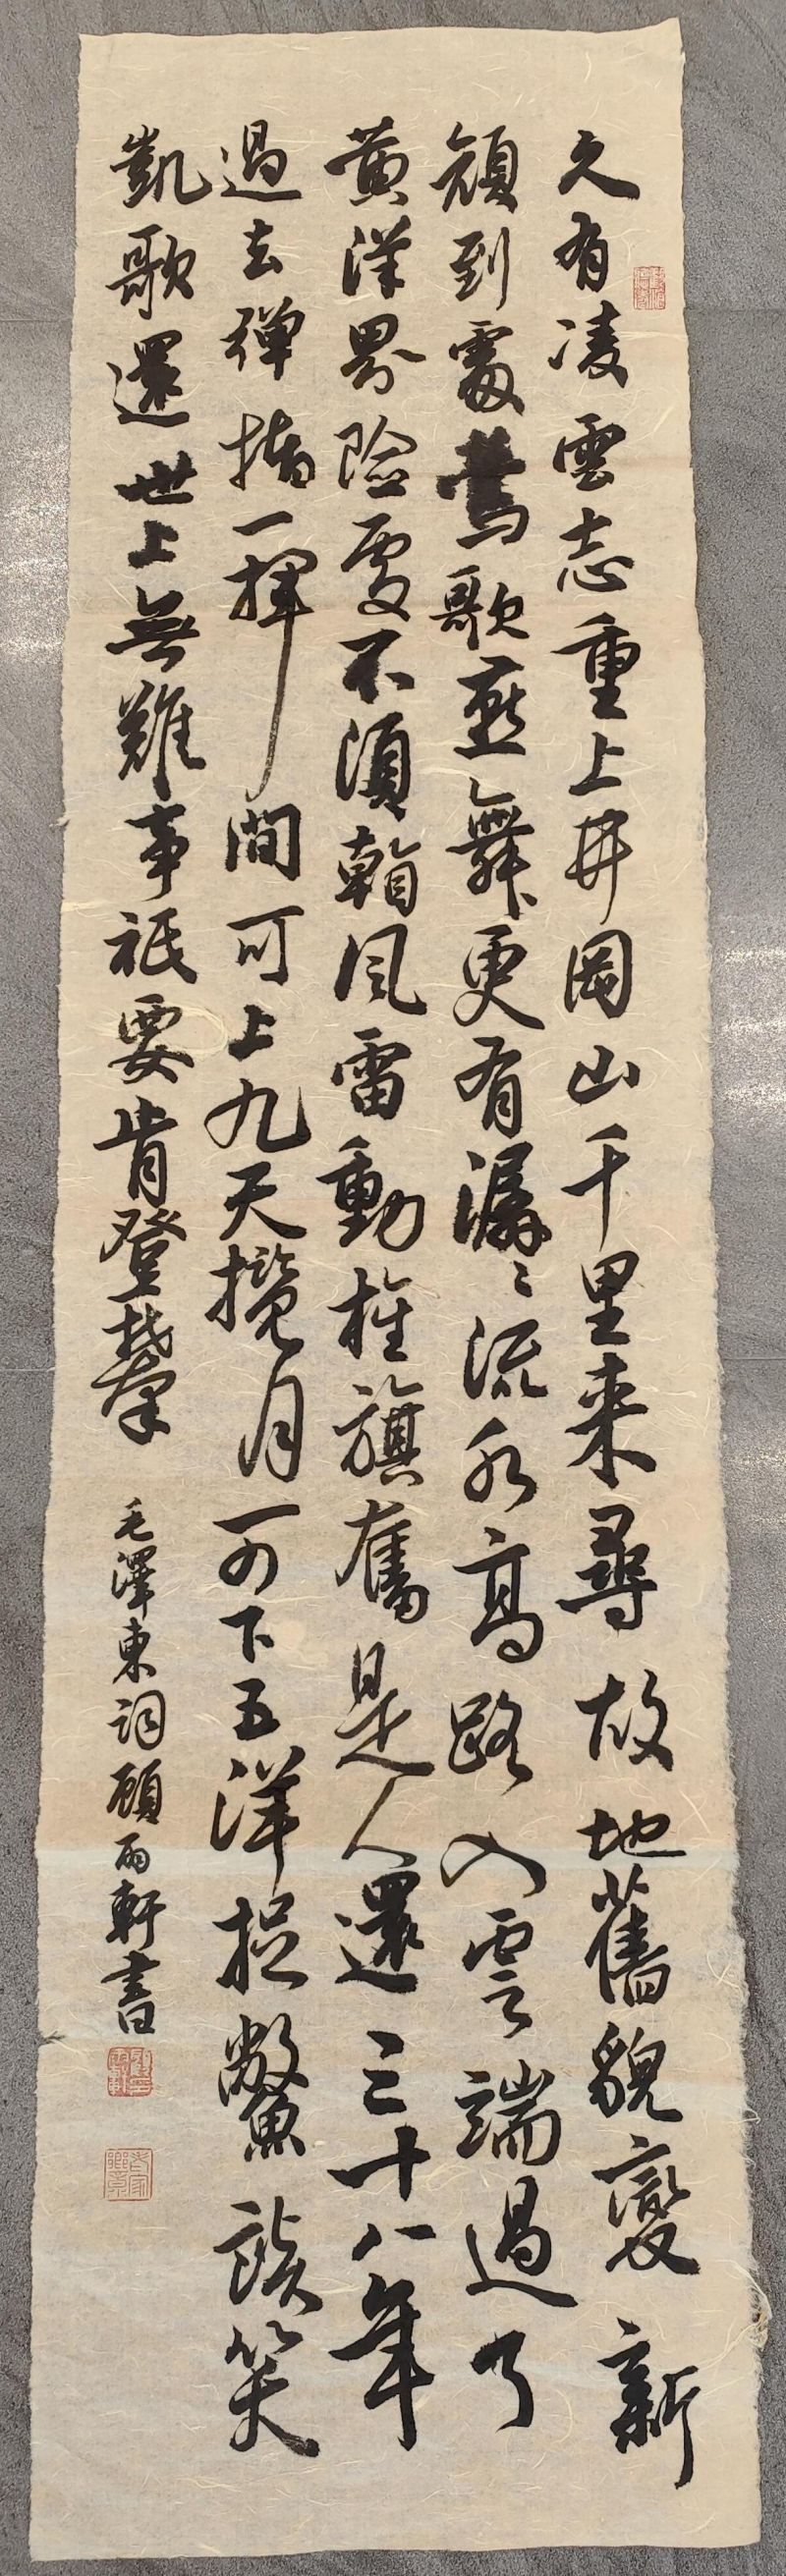 久有凌雲志重上井岡山千里来尋故地舊貌變新
顔到處鶯歌燕舞更有潺〻流水高路入雲端過了
黄洋界险處不須看風雷動旌旗奮是人還三十八年
過去彈指一揮間可上九天攬月可下五洋捉鱉談笑
凱歌還世上無難事祇要肯登攀
毛澤東詞顧雨軒書